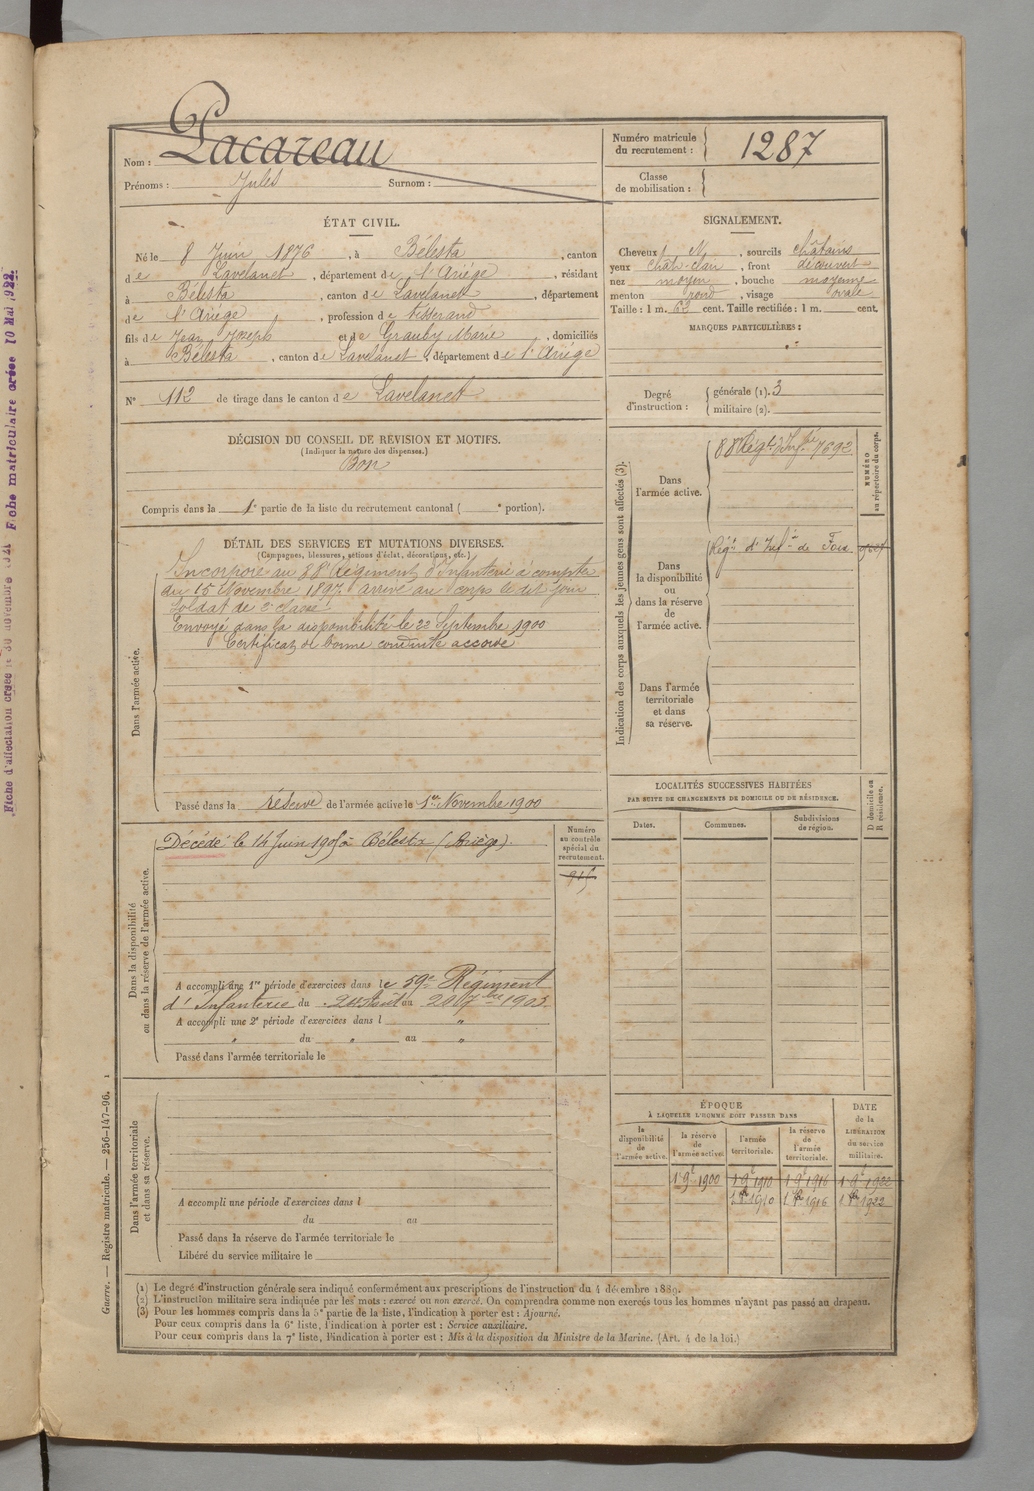 Nom : Lacareau
Prénoms : Jules Surnom :
Numéro matricule du recrutement : 1287
Classe de mobilisation :
ÉTAT CIVIL.
Né le 8 Juin 1876, à Bélesta, canton
de Lavelanet, département de l'Ariège, résidant
à Bélesta, canton de Lavelanet, département
de l'Ariège, profession de tisserand
fils de Jean Joseph et de Grauby Marie, domiciliés
à Bélesta, canton de Lavelanet, département de l'Ariège
N° 112 de tirage dans le canton de Lavelanet
DÉCISION DU CONSEIL DE REVISION ET MOTIFS.
(Indiquer la nature des dispenses.)
Bon
Compris dans la 1e partie de la liste du recrutement cantonal ( e portion).
SIGNALEMENT.
Cheveux N, sourcils châtains
yeux chât-clair, front découvert
nez moyen, bouche moyenne
menton rond, visage ovale
Taille : 1 m. 63 cent. Taille rectifiée : 1 m. cent.
MARQUES PARTICULIÈRES :
Degré d'instruction : générale (1). 3
militaire (2).
DÉTAIL DES SERVICES ET MUTATIONS DIVERSES.
(Campagnes, blessures, actions d'éclat, décorations, etc.)
Dans l'armée active.
Incorporé au 88e Régiment d'Infanterie à compter
du 15 Novembre 1897 arrivé au corps le dit jour
Soldat de 2e classe
Envoyé dans la disponibilité le 22 Septembre 1900
Certificat de bonne conduite accordé
Passé dans la réserve de l'armée active le 1er Novembre 1900
Indication des corps auxquels les jeunes gens sont affectés (3).
NUMÉRO au répertoire du corps.
Dans l'armée active.
88 Régt d'Infrie 7692
Dans la disponibilité ou dans la réserve de l'armée active.
Régt d'Infrie de Foix
Dans l'armée territoriale et dans sa réserve.
LOCALITÉS SUCCESSIVES HABITÉES
PAR SUITE DE CHANGEMENTS DE DOMICILE OU DE RÉSIDENCE.
Dates. Communes. Subdivisions de région. D domicile ou R résidence.
Dans la disponibilité ou dans la réserve de l'armée active.
Décédé le 14 Juin 1905 à Bélesta (Ariège).
Numéro au contrôle spécial du recrutement.
A accompli une 1re période d'exercices dans le 59e Régiment
d'Infanterie du 24 Août au 20 7bre 1903
A accompli une 2e période d'exercices dans l "
" du " au "
Passé dans l'armée territoriale le
Dans l'armée territoriale et dans sa réserve.
A accompli une période d'exercices dans l
du au
Passé dans la réserve de l'armée territoriale le
Libéré du service militaire le
ÉPOQUE
À LAQUELLE L'HOMME DOIT PASSER DANS
la disponibilité de l'armée active. la réserve de l'armée active. l'armée territoriale. la réserve de l'armée territoriale.
DATE de la LIBÉRATION du service militaire.
1 9e 1900 1 9e 1910 1 9e 1916 1 9e 1922
1910 1916 1922
(1) Le degré d'instruction générale sera indiqué conformément aux prescriptions de l'instruction du 4 décembre 1889.
(2) L'instruction militaire sera indiquée par les mots : exercé ou non exercé. On comprendra comme non exercés tous les hommes n'ayant pas passé au drapeau.
(3) Pour les hommes compris dans la 5e partie de la liste, l'indication à porter est : Ajourné.
Pour ceux compris dans la 6e liste, l'indication à porter est : Service auxiliaire.
Pour ceux compris dans la 7e liste, l'indication à porter est : Mis à la disposition du Ministre de la Marine. (Art. 4 de la loi.)
Guerre. — Registre matricule. — 256-147-96.
Fiche d'affectation créée le 30 novembre 1921 Fiche matriculaire créée 10 Mai 1922.